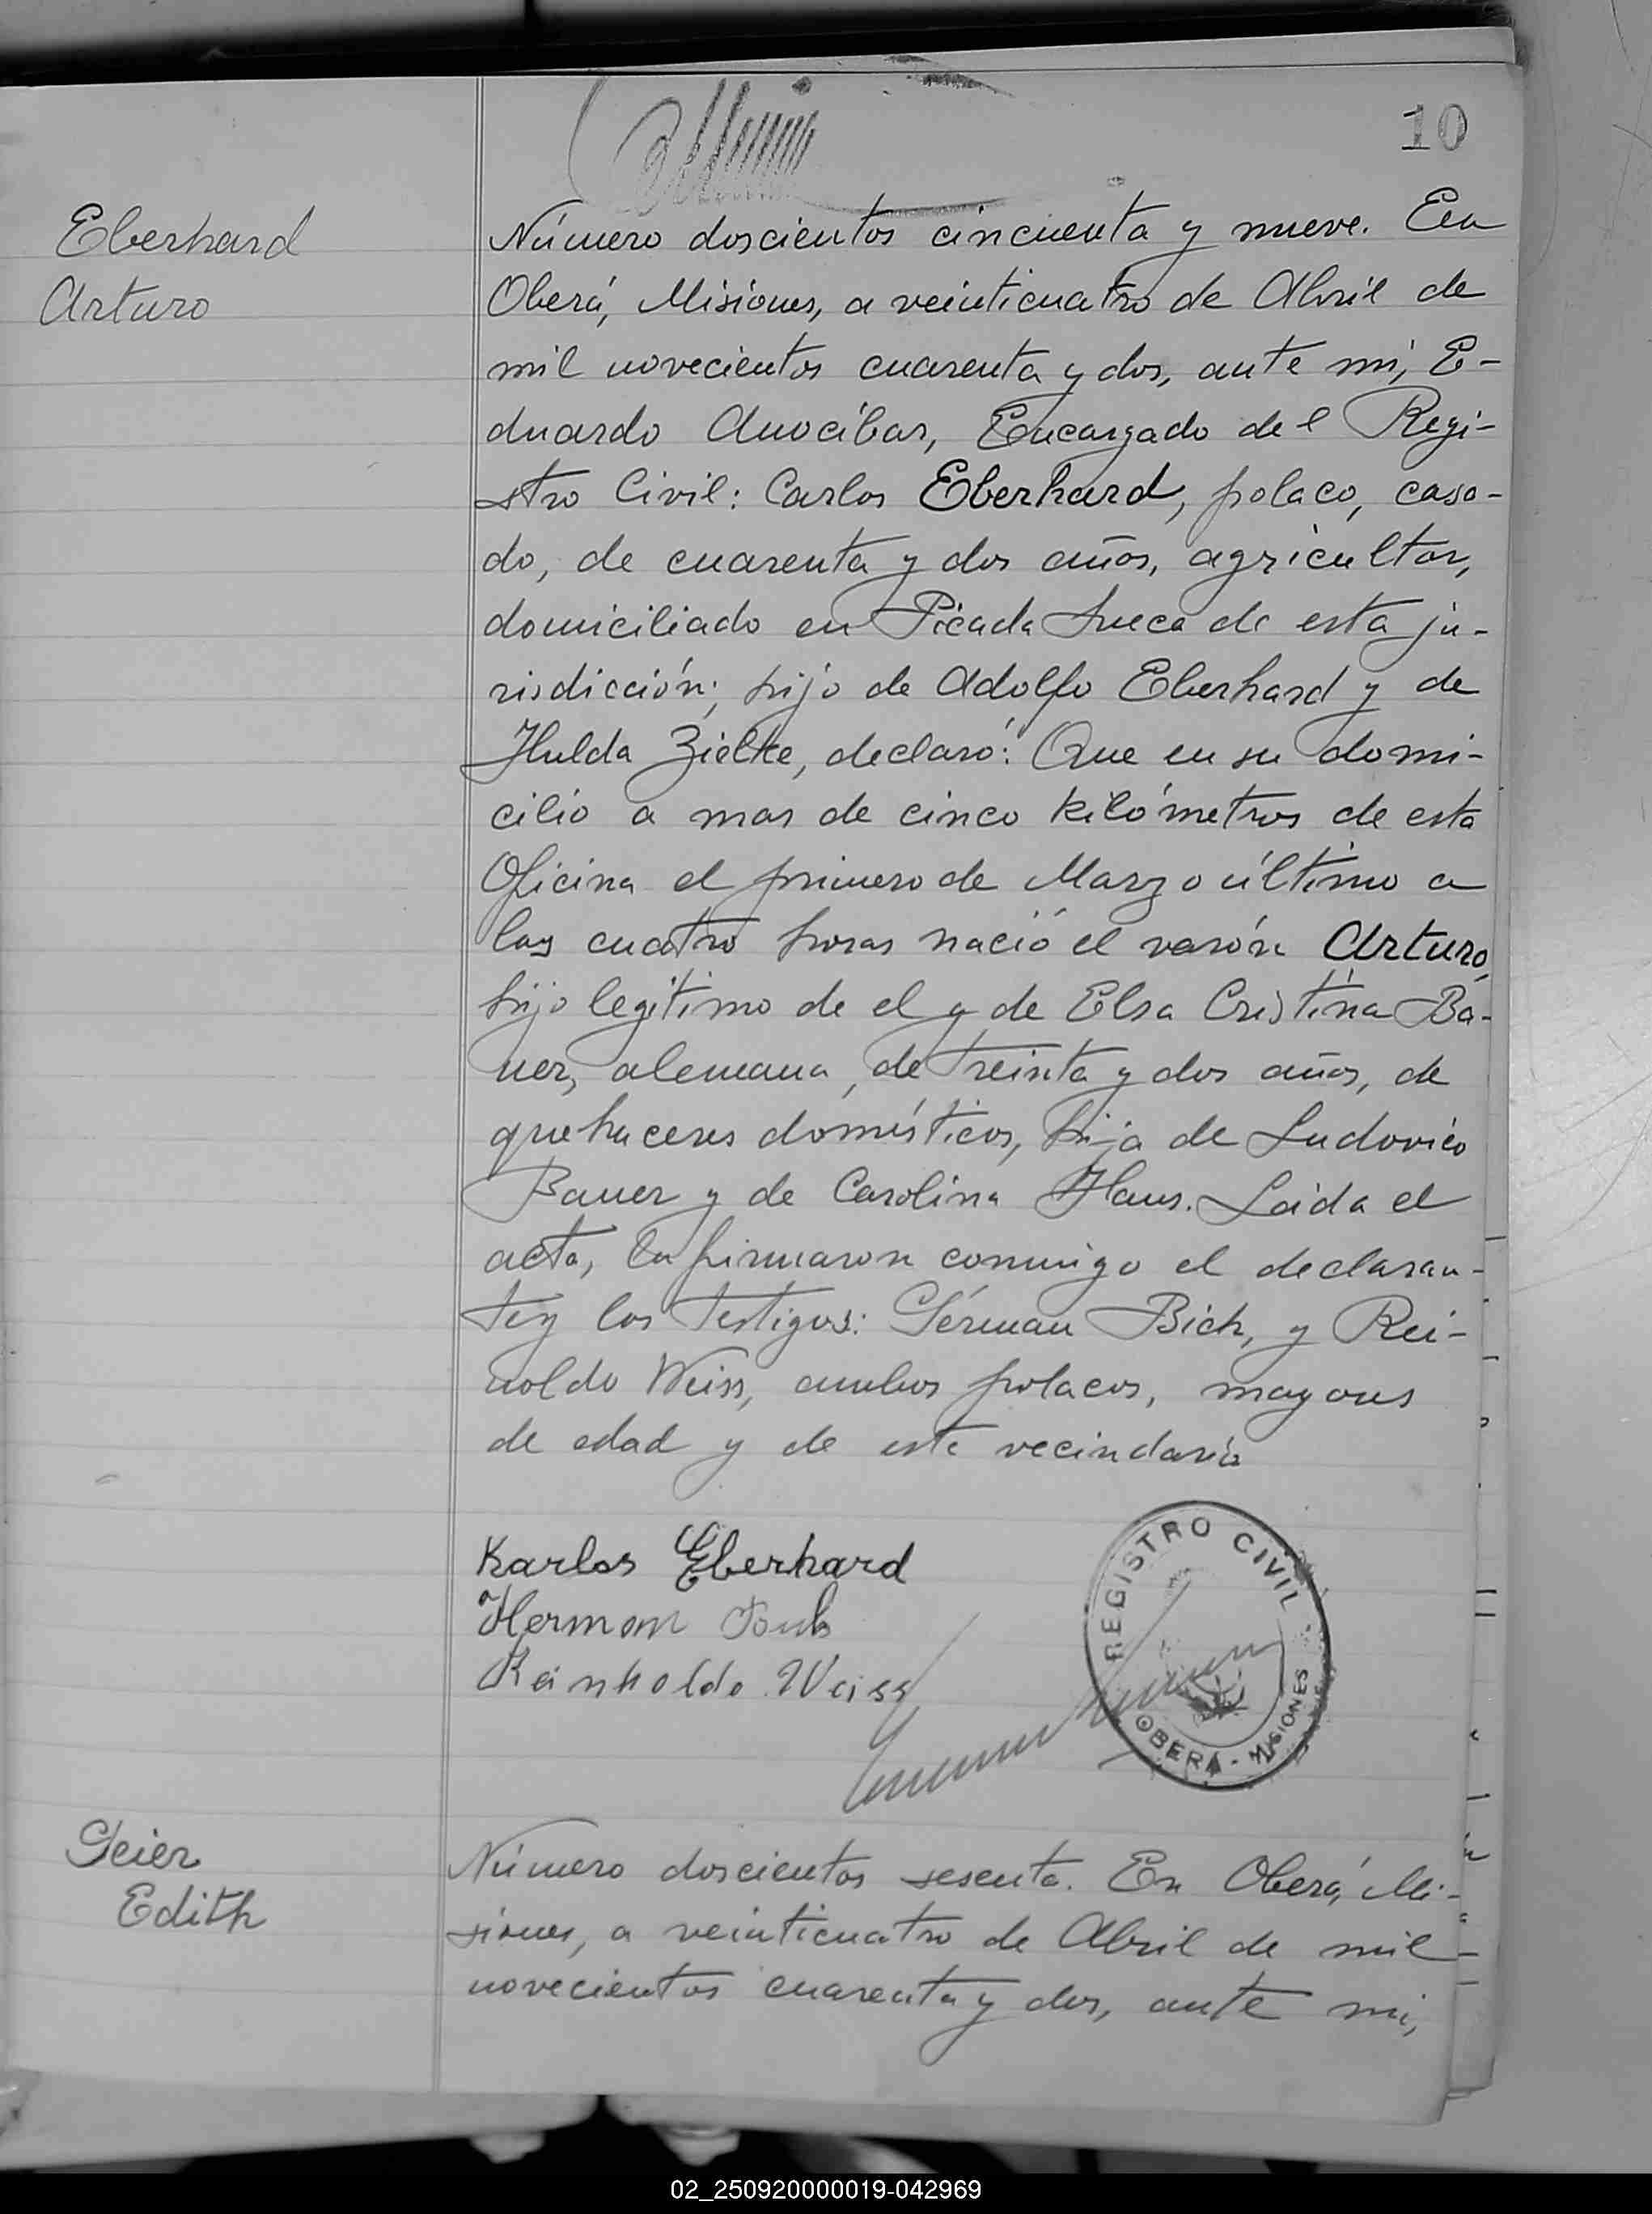 10
Eberhard
Arturo
Número doscientos cincuenta y nueve. En
Oberá, Misiones, a veinticuatro de Abril de
mil novecientos cuarenta y dos, ante mi, E-
duardo Anocíbar, Encargado del Regi-
stro Civil: Carlos Eberhard, polaco, casa-
do, de cuarenta y dos años, agricultor,
domiciliado en Picada Sueca de esta ju-
risdicción; hijo de Adolfo Eberhard y de
Hulda Zielke, declaró: Que en su domi-
cilio a mas de cinco kilómetros de esta
Oficina el primero de Marzo último a
las cuatro horas nació el varón Arturo,
hijo legítimo de el y de Elsa Cristina Ba-
uer, alemana, de treinta y dos años, de
quehaceres domésticos, hija de Ludovico
Bauer y de Carolina Haus. Leida el
acta, la firmaron conmigo el declaran-
te y los testigos: Gérman Bich, y Rei-
noldo Weiss, ambos polacos, mayores
de edad y de este vecindario
Karlos Eberhard
Herman
Reinholdo Weiss
REGISTRO CIVIL
OBERÁ - MISIONES
Geier
Edith
Número doscientos sesenta. En Oberá, Mi-
siones, a veinticuatro de Abril de mil
novecientos cuarenta y dos, ante mi,
02_250920000019-042969